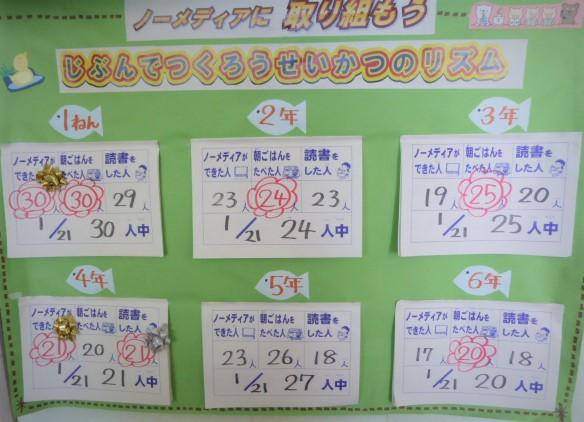 ノーメディアに 取り組もう
じぶんでつくろうせいかつのリズム
1ねん
ノーメディアが 朝ごはんを 読書を
できた人 たべた人 した人
30 30 29
1/21 30 人中
2年
ノーメディアが 朝ごはんを 読書を
できた人 たべた人 した人
23 24 23
1/21 24 人中
3年
ノーメディアが 朝ごはんを 読書を
できた人 たべた人 した人
19 25 20
1/21 25 人中
4年
ノーメディアが 朝ごはんを 読書を
できた人 たべた人 した人
21 20 21
1/21 21 人中
5年
ノーメディアが 朝ごはんを 読書を
できた人 たべた人 した人
23 26 18
1/21 27 人中
6年
ノーメディアが 朝ごはんを 読書を
できた人 たべた人 した人
17 20 18
1/21 20 人中